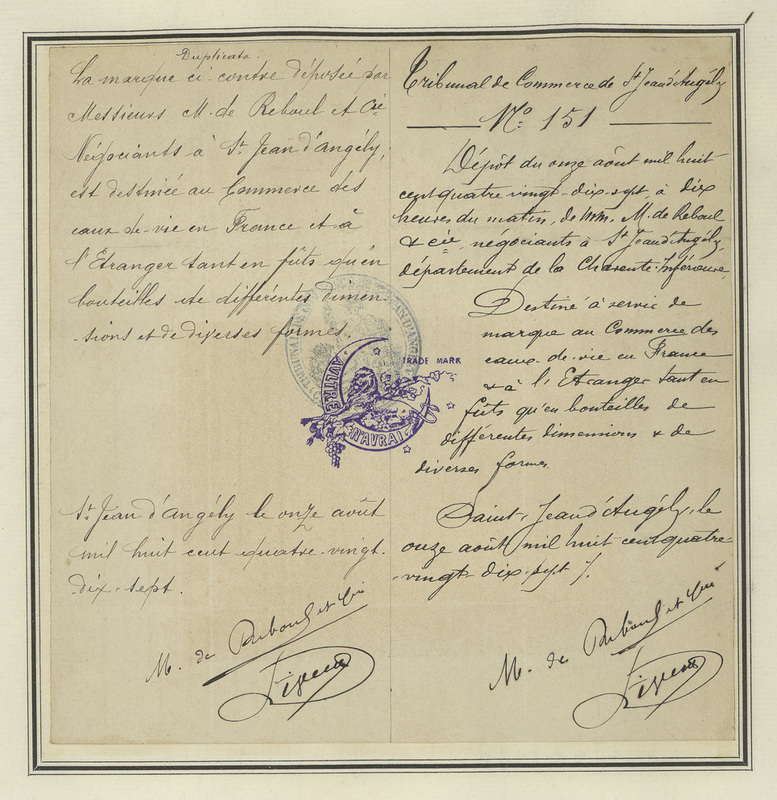 Duplicata.
La marque ci-contre déposée par
Messieurs M. de Reboul et Cie
Négociants à St Jean d'angély,
est destinée au Commerce des
eaux-de-vie en France et à
l'Etranger tant en fûts qu'en
bouteilles de différentes dimen-
sions et de diverses formes.
St Jean d'angély le onze août
mil huit cent quatre-vingt-
dix-sept.
M. de Reboul et Cie
Tribunal de Commerce de St Jean d'Angély
No. 151
Dépôt du onze août mil huit
cent quatre vingt-dix-sept à dix
heures du matin, de MM. M. de Reboul
& Cie, négociants à St Jean d'Angély,
département de la Charente-Inférieure,
Destiné à servir de
marque au Commerce des
eaux-de-vie en France
& à l'Etranger tant en
fûts qu'en bouteilles de
différentes dimensions & de
diverses formes.
Saint-Jean d'Angély, le
onze août mil huit cent quatre-
vingt-dix-sept /.
M. de Reboul et Cie
TRADE MARK
AULTRE
N'AVRAI